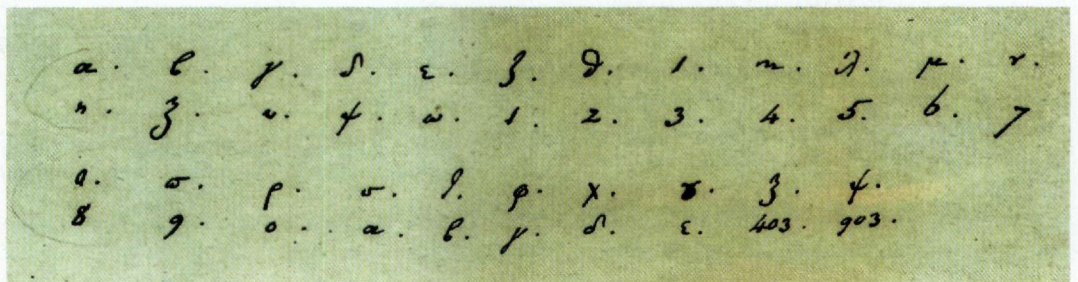 α . β . γ . δ . ε . ζ . θ . ι . κ . λ . μ . ν .
η . ξ . υ . ψ . ω . 1 . 2 . 3 . 4 . 5 . 6 . 7
ο . ϖ . ρ . σ . τ . φ . χ . ȣ . ξ . ψ .
8 9 . 0 . α . β . γ . δ . ε . 403 . 903 .